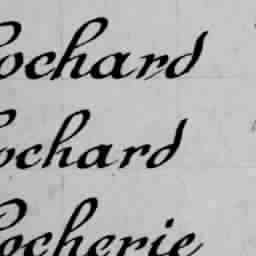 ochard
ochard
ocherie